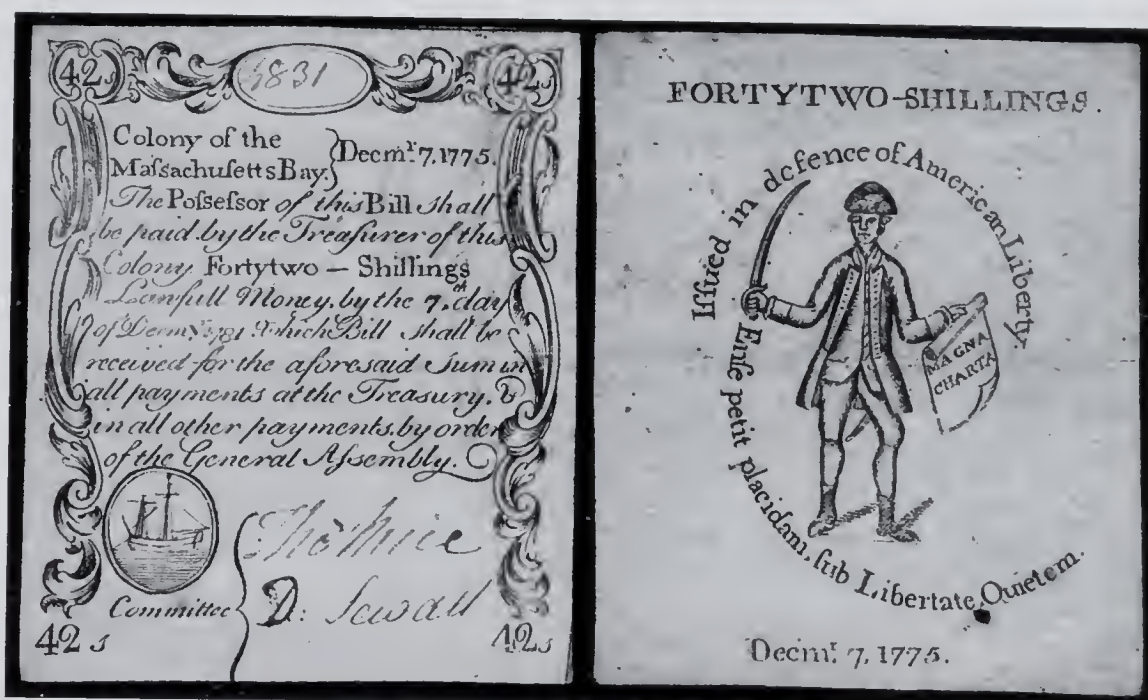 42s 42s
6831
Colony of the
Maſsachuſetts Bay. } Decmr. 7, 1775.
The Poſseſsor of this Bill shall
be paid by the Treaſurer of this
Colony Fortytwo — Shillings
Lawfull Money, by the 7th. day
of Decmr. 1781 Which Bill shall be
received for the aforesaid Sum in
all payments at the Treasury. &
in all other payments by order
of the General Aſsembly.
Committee { Tho Mice
D: Sewall
42s 42s
FORTYTWO-SHILLINGS.
Iſsued in defence of American Liberty.
Enſe petit placidam, ſub Libertate, Quietem.
MAGNA
CHARTA
Decmr. 7, 1775.